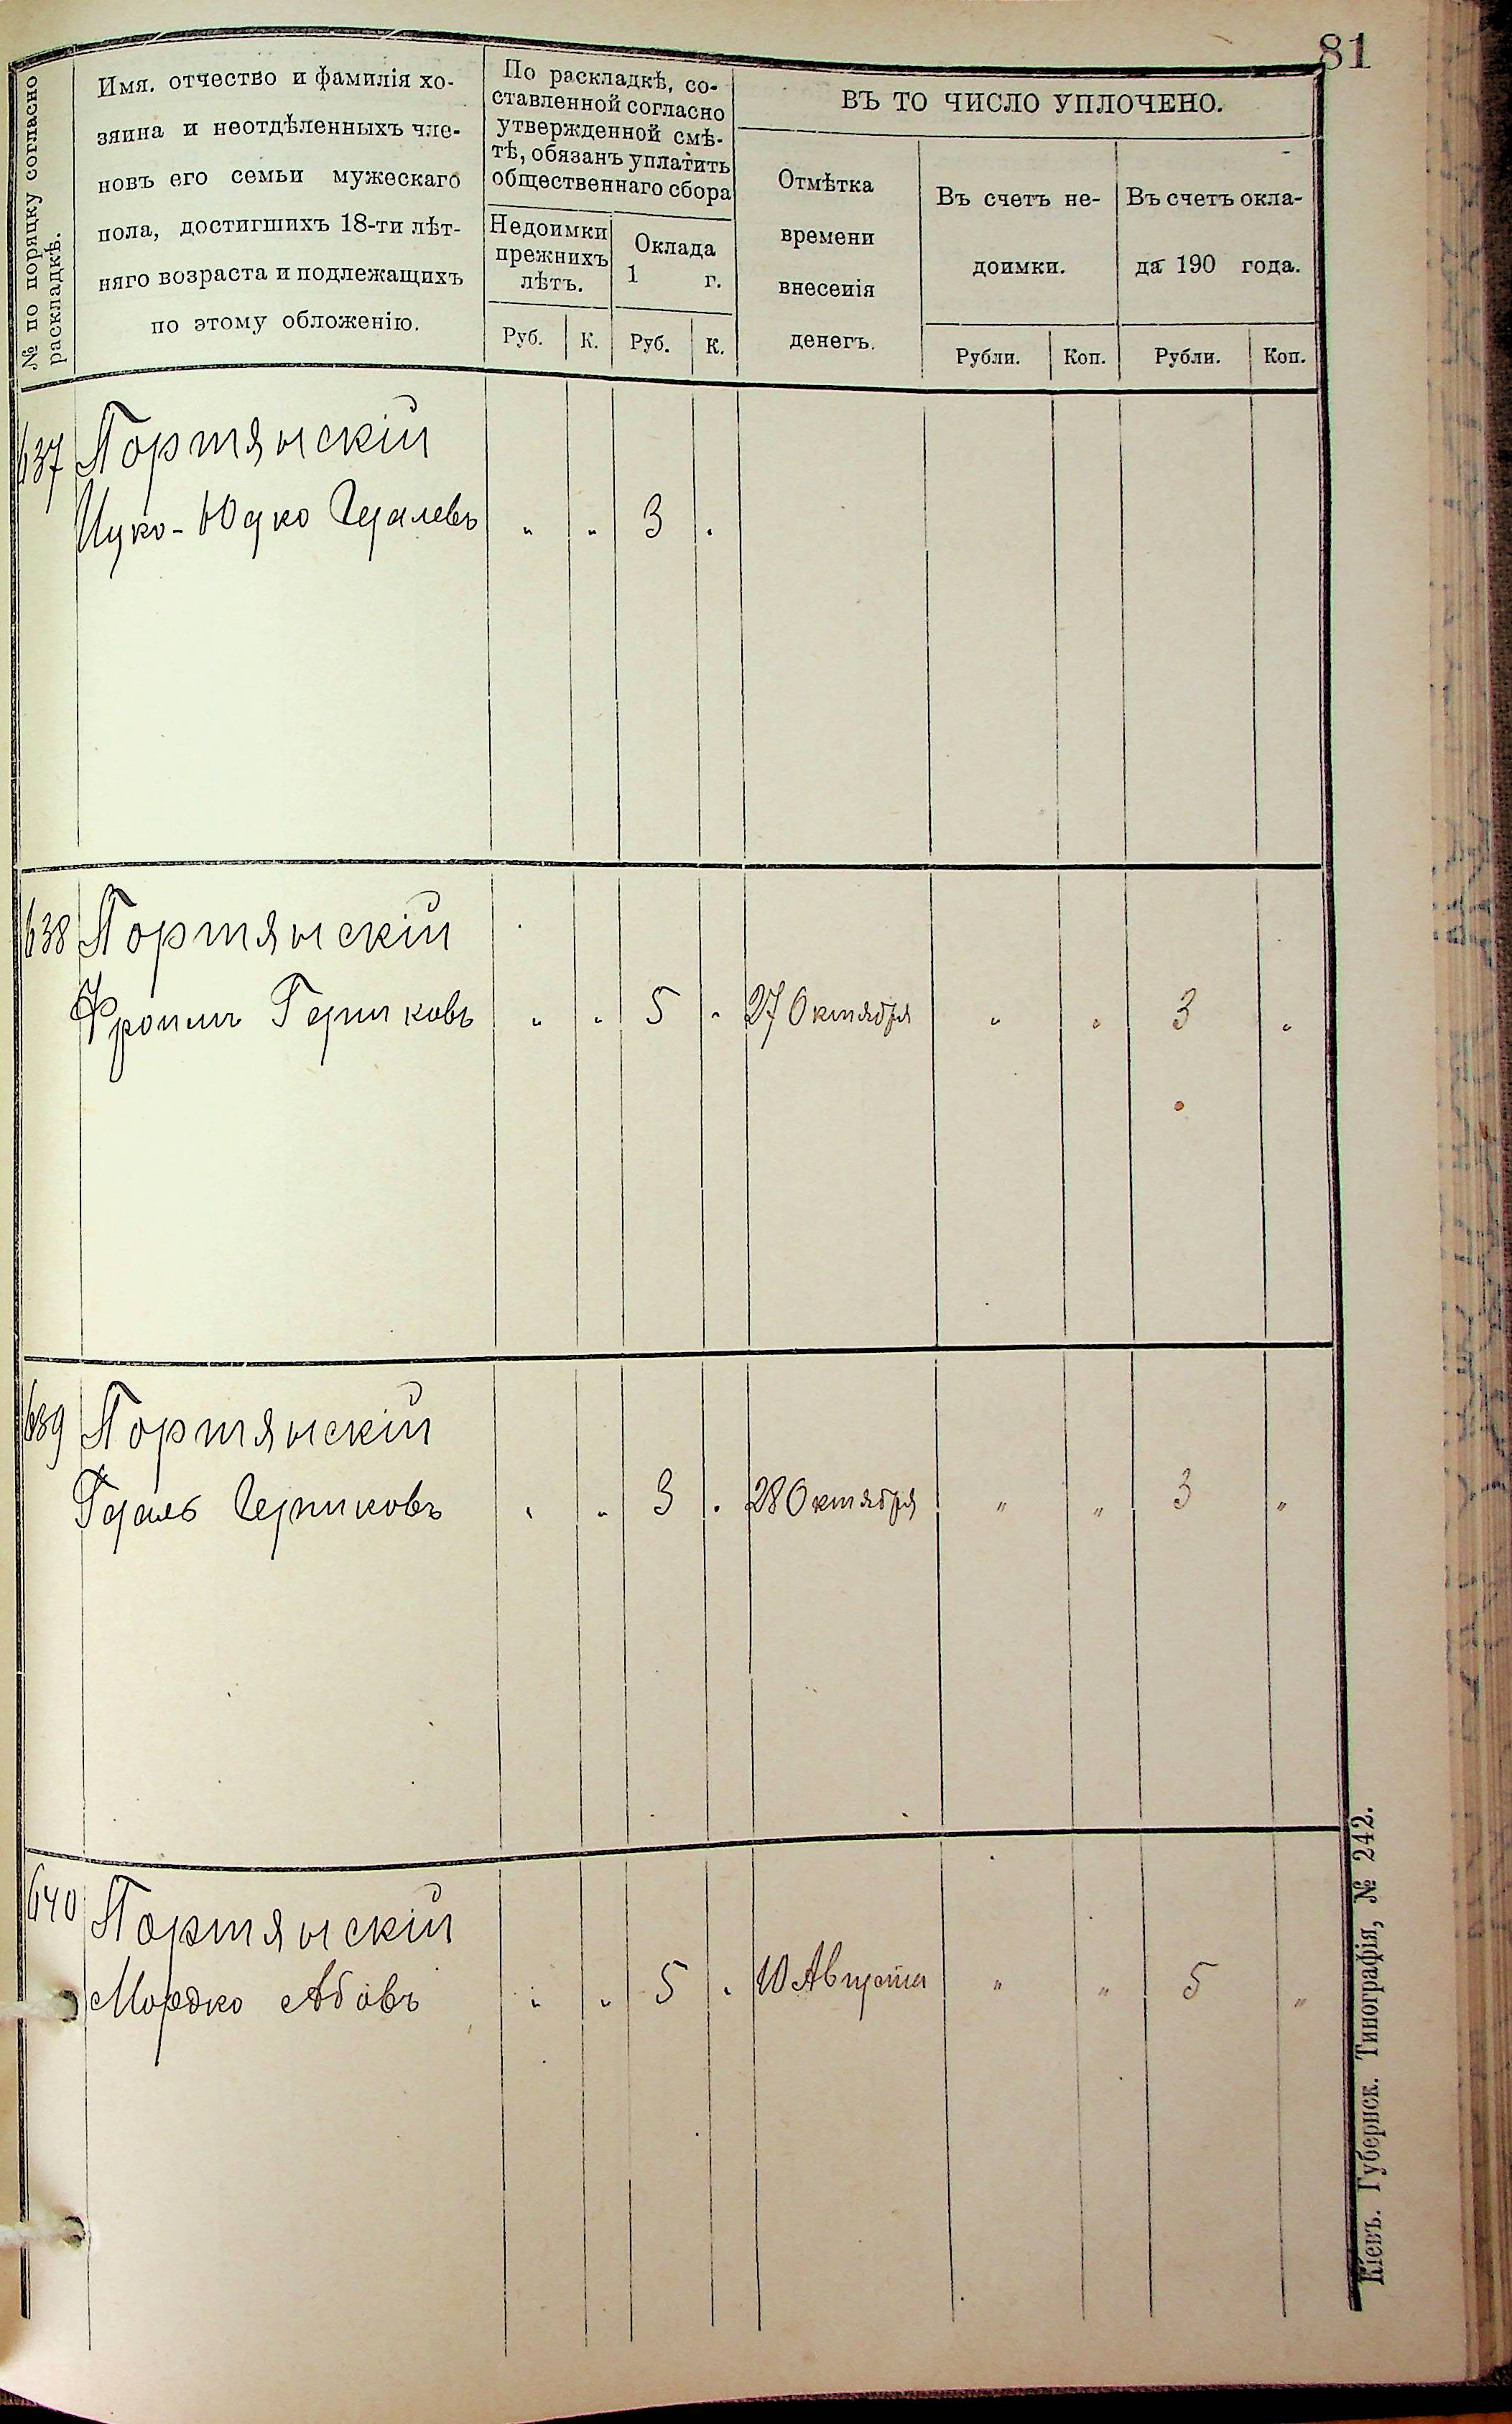 81
№ по порядку согласно
раскладкѣ.
Имя, отчество и фамилія хо-
зяина и неотдѣленныхъ чле-
новъ его семьи мужескаго
пола, достигшихъ 18-ти лѣт-
няго возраста и подлежащихъ
по этому обложенію.
По раскладкѣ, со-
ставленной согласно
утвержденной смѣ-
тѣ, обязанъ уплатить
общественнаго сбора
Недоимки
прежнихъ
лѣтъ.
Оклада
1 г.
Руб. К. Руб. К.
ВЪ ТО ЧИСЛО УПЛОЧЕНО.
Отмѣтка
времени
внесенія
денегъ.
Въ счетъ не-
доимки.
Въ счетъ окла-
да 190 года.
Рубли. Коп. Рубли. Коп.
637 Портянскій
Ицко-Юдко Гедалевъ " " 3 "
638 Портянскій
Фроимъ Гершковъ " " 5 " 27 Октября " " 3 "
639 Портянскій
Гедаль Гершковъ " " 3 " 28 Октября " " 3 "
640 Портянскій
Мордко Абовъ " " 5 " 10 Августа " " 5 "
Кіевъ. Губернск. Типографія, № 242.